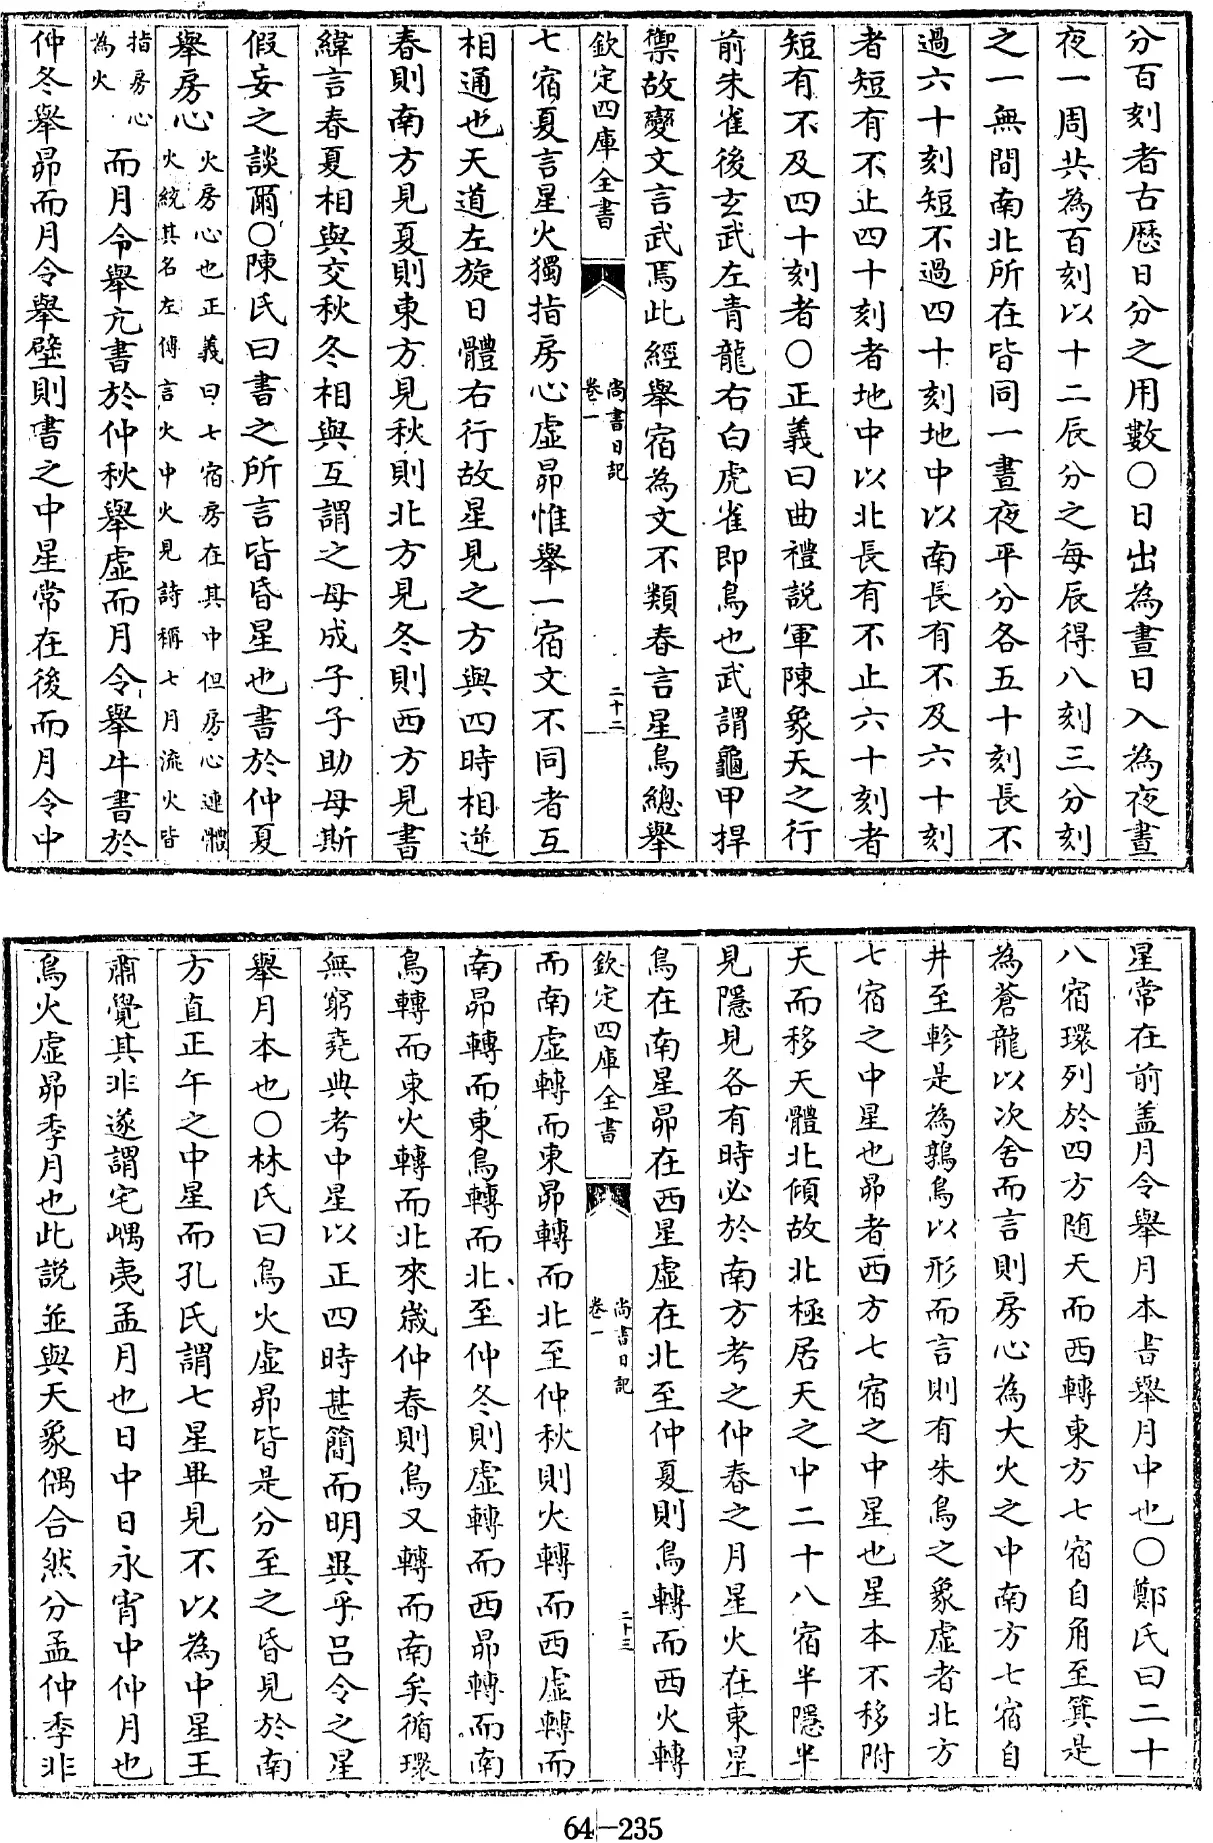 分百刻者古歴日分之用數○日出為晝日入為夜晝
夜一周共為百刻以十二辰分之每辰得八刻三分刻
之一無間南北所在皆同一晝夜平分各五十刻長不
過六十刻短不過四十刻地中以南長有不及六十刻
者短有不止四十刻者地中以北長有不止六十刻者
短有不及四十刻者○正義曰曲禮說軍陳象天之行
前朱雀後玄武左青龍右白虎雀即鳥也武謂龜甲捍
禦故變文言武焉此經舉宿為文不類春言星鳥總舉
欽定四庫全書
尚書日記
卷一
二十二
七宿夏言星火獨指房心虛昴惟舉一宿文不同者互
相通也天道左旋日體右行故星見之方與四時相逆
春則南方見夏則東方見秋則北方見冬則西方見書
緯言春夏相與交秋冬相與互謂之母成子子助母斯
假妄之談爾○陳氏曰書之所言皆昏星也書於仲夏
舉房心
火房心也正義曰七宿房在其中但房心連體
火統其名左傳言火中火見詩稱七月流火皆
指房心
為火
而月令舉亢書於仲秋舉虛而月令舉牛書於
仲冬舉昴而月令舉壁則書之中星常在後而月令中
星常在前盖月令舉月本書舉月中也○鄭氏曰二十
八宿環列於四方随天而西轉東方七宿自角至箕是
為蒼龍以次舍而言則房心為大火之中南方七宿自
井至軫是為鶉鳥以形而言則有朱鳥之象虛者北方
七宿之中星也昴者西方七宿之中星也星本不移附
天而移天體北傾故北極居天之中二十八宿半隱半
見隱見各有時必於南方考之仲春之月星火在東星
鳥在南星昴在西星虛在北至仲夏則鳥轉而西火轉
欽定四庫全書
尚書日記
卷一
二十三
而南虛轉而東昴轉而北至仲秋則火轉而西虛轉而
南昴轉而東鳥轉而北至仲冬則虛轉而西昴轉而南
鳥轉而東火轉而北來歲仲春則鳥又轉而南矣循環
無窮堯典考中星以正四時甚簡而明異乎吕令之星
舉月本也○林氏曰鳥火虛昴皆是分至之昏見於南
方直正午之中星而孔氏謂七星畢見不以為中星王
肅覺其非遂謂宅嵎夷孟月也日中日永宵中仲月也
鳥火虛昴季月也此說並與天象偶合然分孟仲季非
64-235